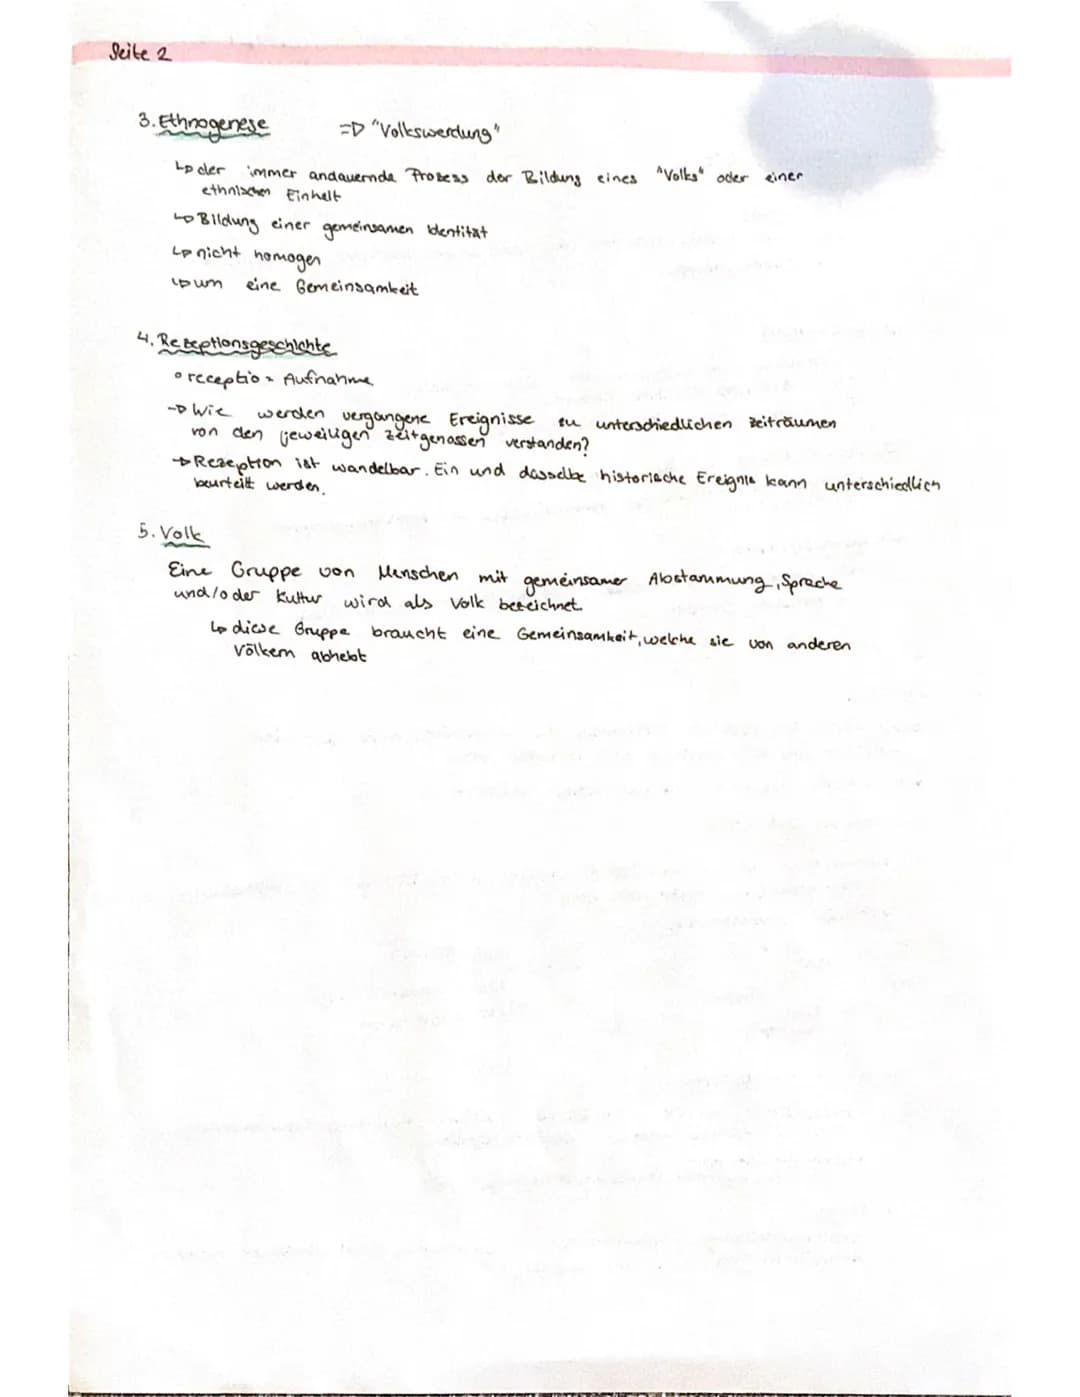 Seite 2
3. Ethnogenese => "Volkswerdung"
↳ der immer andauernde Prozess der Bildung eines "Volks" oder einer
ethnischen Einheit
↳ Bildung einer gemeinsamen Identität
↳ nicht homogen
↳ um eine Gemeinsamkeit
4. Rezeptionsgeschichte
° receptio = Aufnahme
→ Wie werden vergangene Ereignisse zu unterschiedlichen Zeiträumen
von den jeweiligen Zeitgenossen verstanden?
→ Rezeption ist wandelbar. Ein und dasselbe historische Ereignis kann unterschiedlich
beurteilt werden.
5. Volk
Eine Gruppe von Menschen mit gemeinsamer Abstammung, Sprache
und/oder Kultur wird als Volk bezeichnet.
↳ diese Gruppe braucht eine Gemeinsamkeit, welche sie von anderen
Völkern abhebt